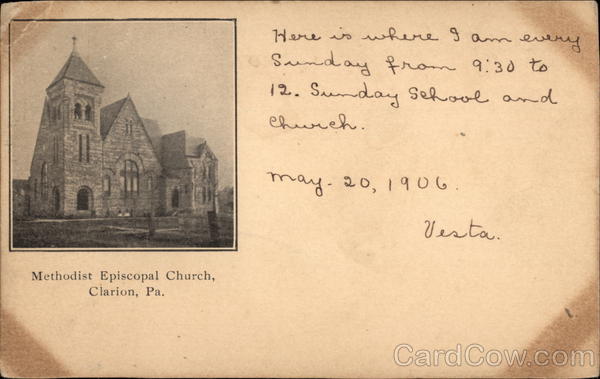 Here is where I am every
Sunday from 9:30 to
12. Sunday School and
Church.
May. 20, 1906.
Vesta.
Methodist Episcopal Church,
Clarion, Pa.
CardCow.com